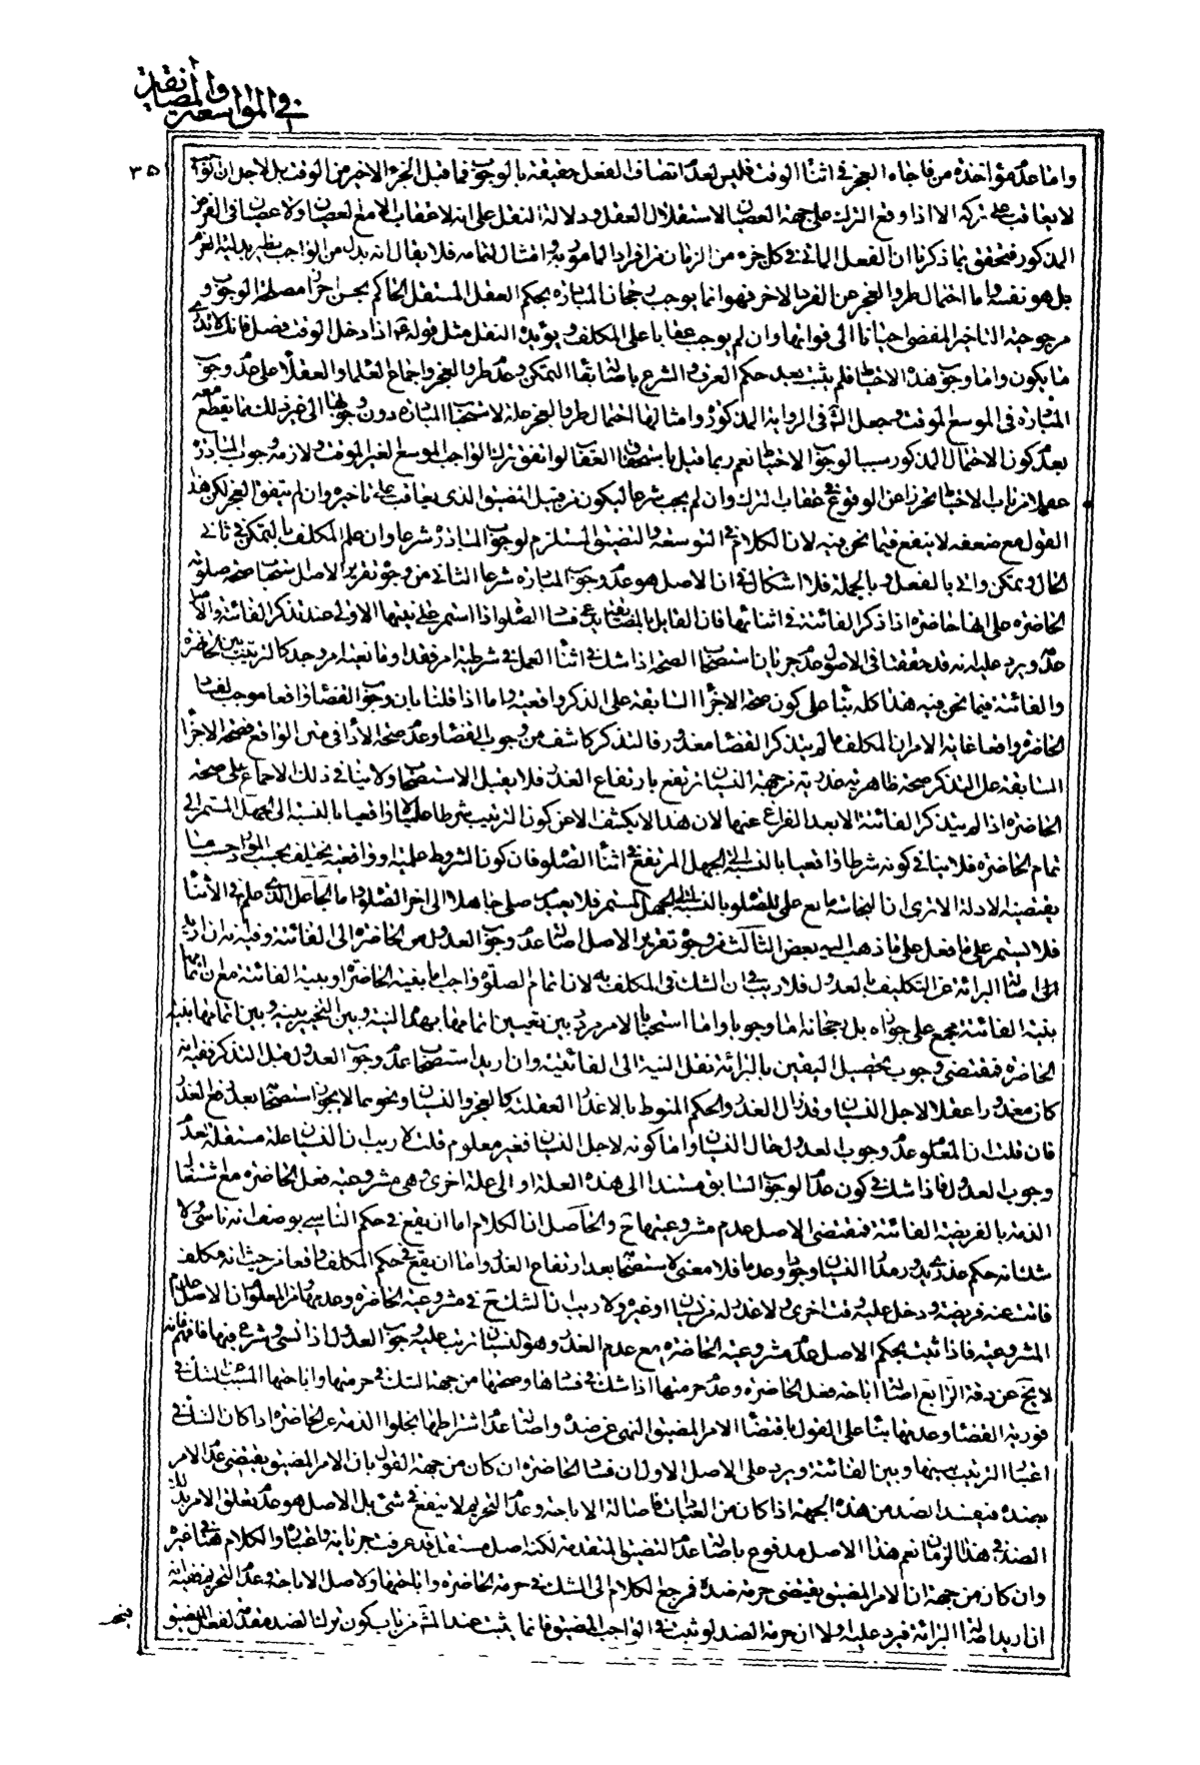 في المواسعة والمضايقة
٣٥١
واما عدم مؤاخذة من فاجاه العجز في اثناء الوقت فليس لعدم اتصاف الفعل حقيقة بالوجوب فيما قبل الجزء الاخير من الوقت بل لاجل ان
لا يعاقب على تركه الا اذا وقع الترك على جهة العصيان لاستقلال العقل ودلالة النقل على انه لا عقاب الا مع العصيان ولا عصيان في الفرض
المذكور فتحقق بما ذكرنا ان الفعل الماتي في كل جزء من الزمان من افراد المامور به وامتثال لتمامه فلا يقال انه بدل من الواجب
بل هو نفسه واما احتمال طرو العجز عن الفرد الاخر فهو انما يوجب رجحان المبادرة بحكم العقل المستقل الحاكم بحسن احراز مصلحة الوجوب و
مرجوحية التاخير المفضي احيانا الى فواتها وان لم يوجب عقابا على المكلف ويؤيده النقل مثل قوله ع اذا دخل الوقت فصل فانك لا تدري
ما يكون واما وجوب هذا الاحتياط فلم يثبت بعد حكم العرف والشرع باصالة بقاء التمكن وعدم طرو العجز واجماع العلماء والعقلاء على عدم وجوب
المبادرة في الموسع الموقت وجعل الشارع في الرواية المذكورة وامثالها احتمال طرو العجز علة لاستحباب المبادرة دون وجوبها الى غير ذلك مما يقطع معه
بعدم كون الاحتمال المذكور سببا لوجوب الاحتياط نعم ربما قيل باستحقاق العقاب لو اتفق ترك الواجب الموسع الغير الموقت ولازمه وجوب المبادرة
عقلا من باب الاحتياط تحرزا عن الوقوع في عقاب الترك وان لم يجب شرعا ليكون من قبيل المضيق الذي يعاقب على تاخيره وان لم يتفق العجز لكن هذا
القول مع ضعفه لا ينفع فيما نحن فيه لان الكلام في التوسعة والتضيق المستلزم لوجوب المبادرة شرعا وان علم المكلف بالتمكن في ثاني
الحال ويمكن واتى بالفعل وبالجملة فلا اشكال في ان الاصل هو عدم وجوب المبادرة شرعا الثاني من وجوه تقرير الاصل استصحاب صحة صلوته
الحاضرة على انها حاضرة اذا ذكر الفائتة في اثنائها فان القائل بالمضايقة يدعي فساد الصلوة اذا استمر على نيتها الاولى عند تذكر الفائتة والاصل
عدمه ويرد عليه انه قد حققنا في الاصول عدم جريان استصحاب الصحة اذا شك في اثناء العمل في شرطية امر فقد او مانعية امر وجد كالترتيب بين الحاضرة
والفائتة فيما نحن فيه هذا كله بناء على كون صحة الاجزاء السابقة على الذكر واقعية واما اذا قلنا بان وجوب القضاء واقعا موجب لفساد
الحاضرة واقعا غاية الامر ان المكلف ما لم يتذكر القضاء معذور فالتذكر كاشف من وجوب القضاء وعدم صحة الاداء في متن الواقع فصحة الاجزاء
السابقة على التذكر صحة ظاهرية عذرية من جهة النسيان ترتفع بارتفاع العذر فلا يقبل الاستصحاب ولا ينافي ذلك الاجماع على صحة
الحاضرة اذا لم يتذكر الفائتة الا بعد الفراغ عنها لان هذا لا يكشف الا عن كون الترتيب شرطا علميا لا واقعيا بالنسبة الى الجهل المستمر الى
تمام الحاضرة فلا ينافي كونه شرطا واقعيا بالنسبة الى الجهل المرتفع في اثناء الصلوة فان كون الشروط علمية وواقعية يختلف بحسب الموارد حسب ما
يقتضيه الادلة الا ترى ان النجاسة مانع علمي للصلوة بالنسبة الى الجهل المستمر فلا يعيد من صلى جاهلا الى اخر الصلوة واما الجاهل الذي علم في الاثناء
فلا يستمر على ما فعل على ما ذهب اليه بعض الثالث من وجوه تقرير الاصل اصالة عدم وجوب العدول من الحاضرة الى الفائتة وفيه انه ان اريد
اصالة البرائة عن التكليف بالعدول فلا ريب في ان الشك في المكلف به لان اتمام الصلوة واجب اما بنية الحاضرة او بنية الفائتة مع ان اتمامها
بنية الفائتة مجمع على جوازه بل رجحانه اما وجوبا واما استحبابا فالامر مردد بين تعيين اتمامها بهذه النية وبين التخيير بينه وبين اتمامها بنية
الحاضرة فمقتضى وجوب تحصيل اليقين بالبرائة نقل النية الى الفائتة وان اريد استصحاب عدم وجوب العدول قبل التذكر ففيه انه
كان معذورا عقلا لاجل النسيان وقد زال العذر والحكم المنوط بالاعذار العقلية كالعجز والنسيان ونحوهما لا يجوز استصحابه بعد رفع العذر
فان قلت ان المعلوم عدم وجوب العدول حال النسيان واما كونه لاجل النسيان فغير معلوم قلت لا ريب ان النسيان علة مستقلة لعدم
وجوب العدول فاذا شك في كون عدم الوجوب السابق مستندا الى هذه العلة او الى علة اخرى هي مشروعية فعل الحاضرة مع اشتغال
الذمة بالفريضة الفائتة فمقتضى الاصل عدم مشروعيتها ح والحاصل ان الكلام اما ان يقع في حكم الناسي بوصف انه ناسي ولا
شك انه حكم عذري يدور مدار النسيان وجودا وعدما فلا معنى لاستصحابه بعد ارتفاع العذر واما ان يقع في حكم المكلف واقعا من حيث انه مكلف
فاتت عنه فريضة ودخل عليه وقت اخرى ولا عذر له من نسيان او غيره ولا ريب ان الشك ح في مشروعية الحاضرة وعدمها ومن المعلوم ان الاصل عدم
المشروعية فاذا ثبت بحكم الاصل عدم مشروعية الحاضرة مع عدم العذر وهو النسيان ترتب عليه وجوب العدول اذا نسي وشرع فيها فافهم فانه
لا يخ عن دقة الرابع اصالة اباحة فعل الحاضرة وعدم حرمتها اذا شك في فسادها وصحتها من جهة الشك في حرمتها واباحتها المسبب للشك في
فورية القضاء وعدمها بناء على القول باقتضاء الامر المضيق النهي عن ضده واصالة عدم اشتراطها بخلو الذمة عن الحاضرة اذا كان الشك في
اعتبار الترتيب بينها وبين الفائتة ويرد على الاصل الاول ان فساد الحاضرة ان كان من جهة القول بان الامر المضيق يقتضي عدم الامر
بضده فيفسد الضد من هذه الجهة اذا كان من العبادات فاصالة الاباحة وعدم التحريم لا ينفع في شئ بل الاصل هو عدم تعلق الامر بذلك
الضد في هذا الزمان نعم هذا الاصل مدفوع باصالة عدم التضيق المتقدمة لكنه اصل مستقل قد عرفت جريانه واعتباره والكلام هنا في غيره
وان كان من جهة ان الامر المضيق يقتضي حرمة ضده فمرجع الكلام الى الشك في حرمة الحاضرة واباحتها والاصل الاباحة وعدم التحريم ففيه انه
ان اريد اصالة البرائة فيرد عليه اولا ان حرمة الضد لو ثبت في الواجب المضيق فانما يثبت عند المشهور من باب كون ترك الضد مقدمة لفعل المضيق
فيحرم